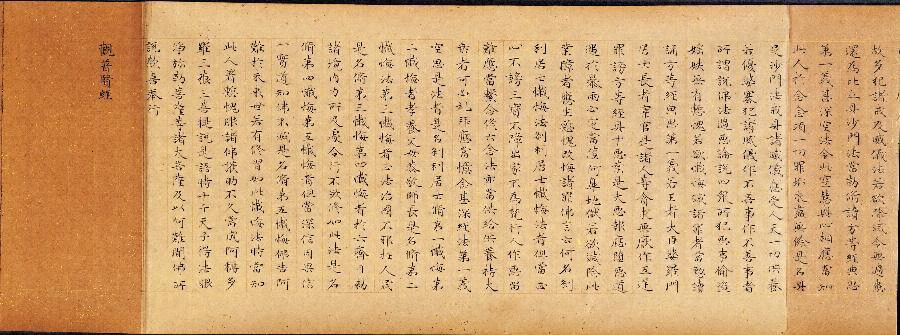 故多犯諸戒及威儀法若欲除滅令無過患
還為比丘具沙門法當勤修讀方等經典思
第一義甚深空法令此空慧與心相應當知
此人於念念頃一切罪垢永盡無餘是名具
足沙門法戒具諸威儀應受人天一切供養
若優婆塞犯諸威儀作不善事不善事者
所謂說佛法過惡論說四眾所犯惡事偷盜
婬妷無有慚愧若欲懺悔滅諸罪者當勤讀
誦方等經典思第一義若王者大臣婆羅門
居士長者宰官是諸人等貪求無厭作五逆
罪謗方等經具十惡業是大惡報應墮惡道
過於暴雨必定當墮阿鼻地獄若欲滅除此
業障者應生慚愧改悔諸罪佛言云何名剎
利居士懺悔法剎利居士懺悔法者但當正
心不謗三寶不障出家不為梵行人作惡留
難應當繫念修六念法亦當供給供養持大
乘者不必禮拜應當憶念甚深經法第一義
空思是法者是名剎利居士修第一懺悔第
二懺悔者孝養父母恭敬師長是名修第二
懺悔法第三懺悔者正法治國不邪枉人民
是名修第三懺悔第四懺悔者於六齋日勅
諸境內力所及處令行不殺修如此法是名
修第四懺悔第五懺悔者但當深信因果信
一實道知佛不滅是名修第五懺悔佛告阿
難於未來世若有修習如此懺悔法時當知
此人著慚愧服諸佛護助不久當成阿耨多
羅三藐三菩提說是語時十千天子得法眼
淨彌勒菩薩等諸大菩薩及以阿難聞佛所
說歡喜奉行
觀普賢經